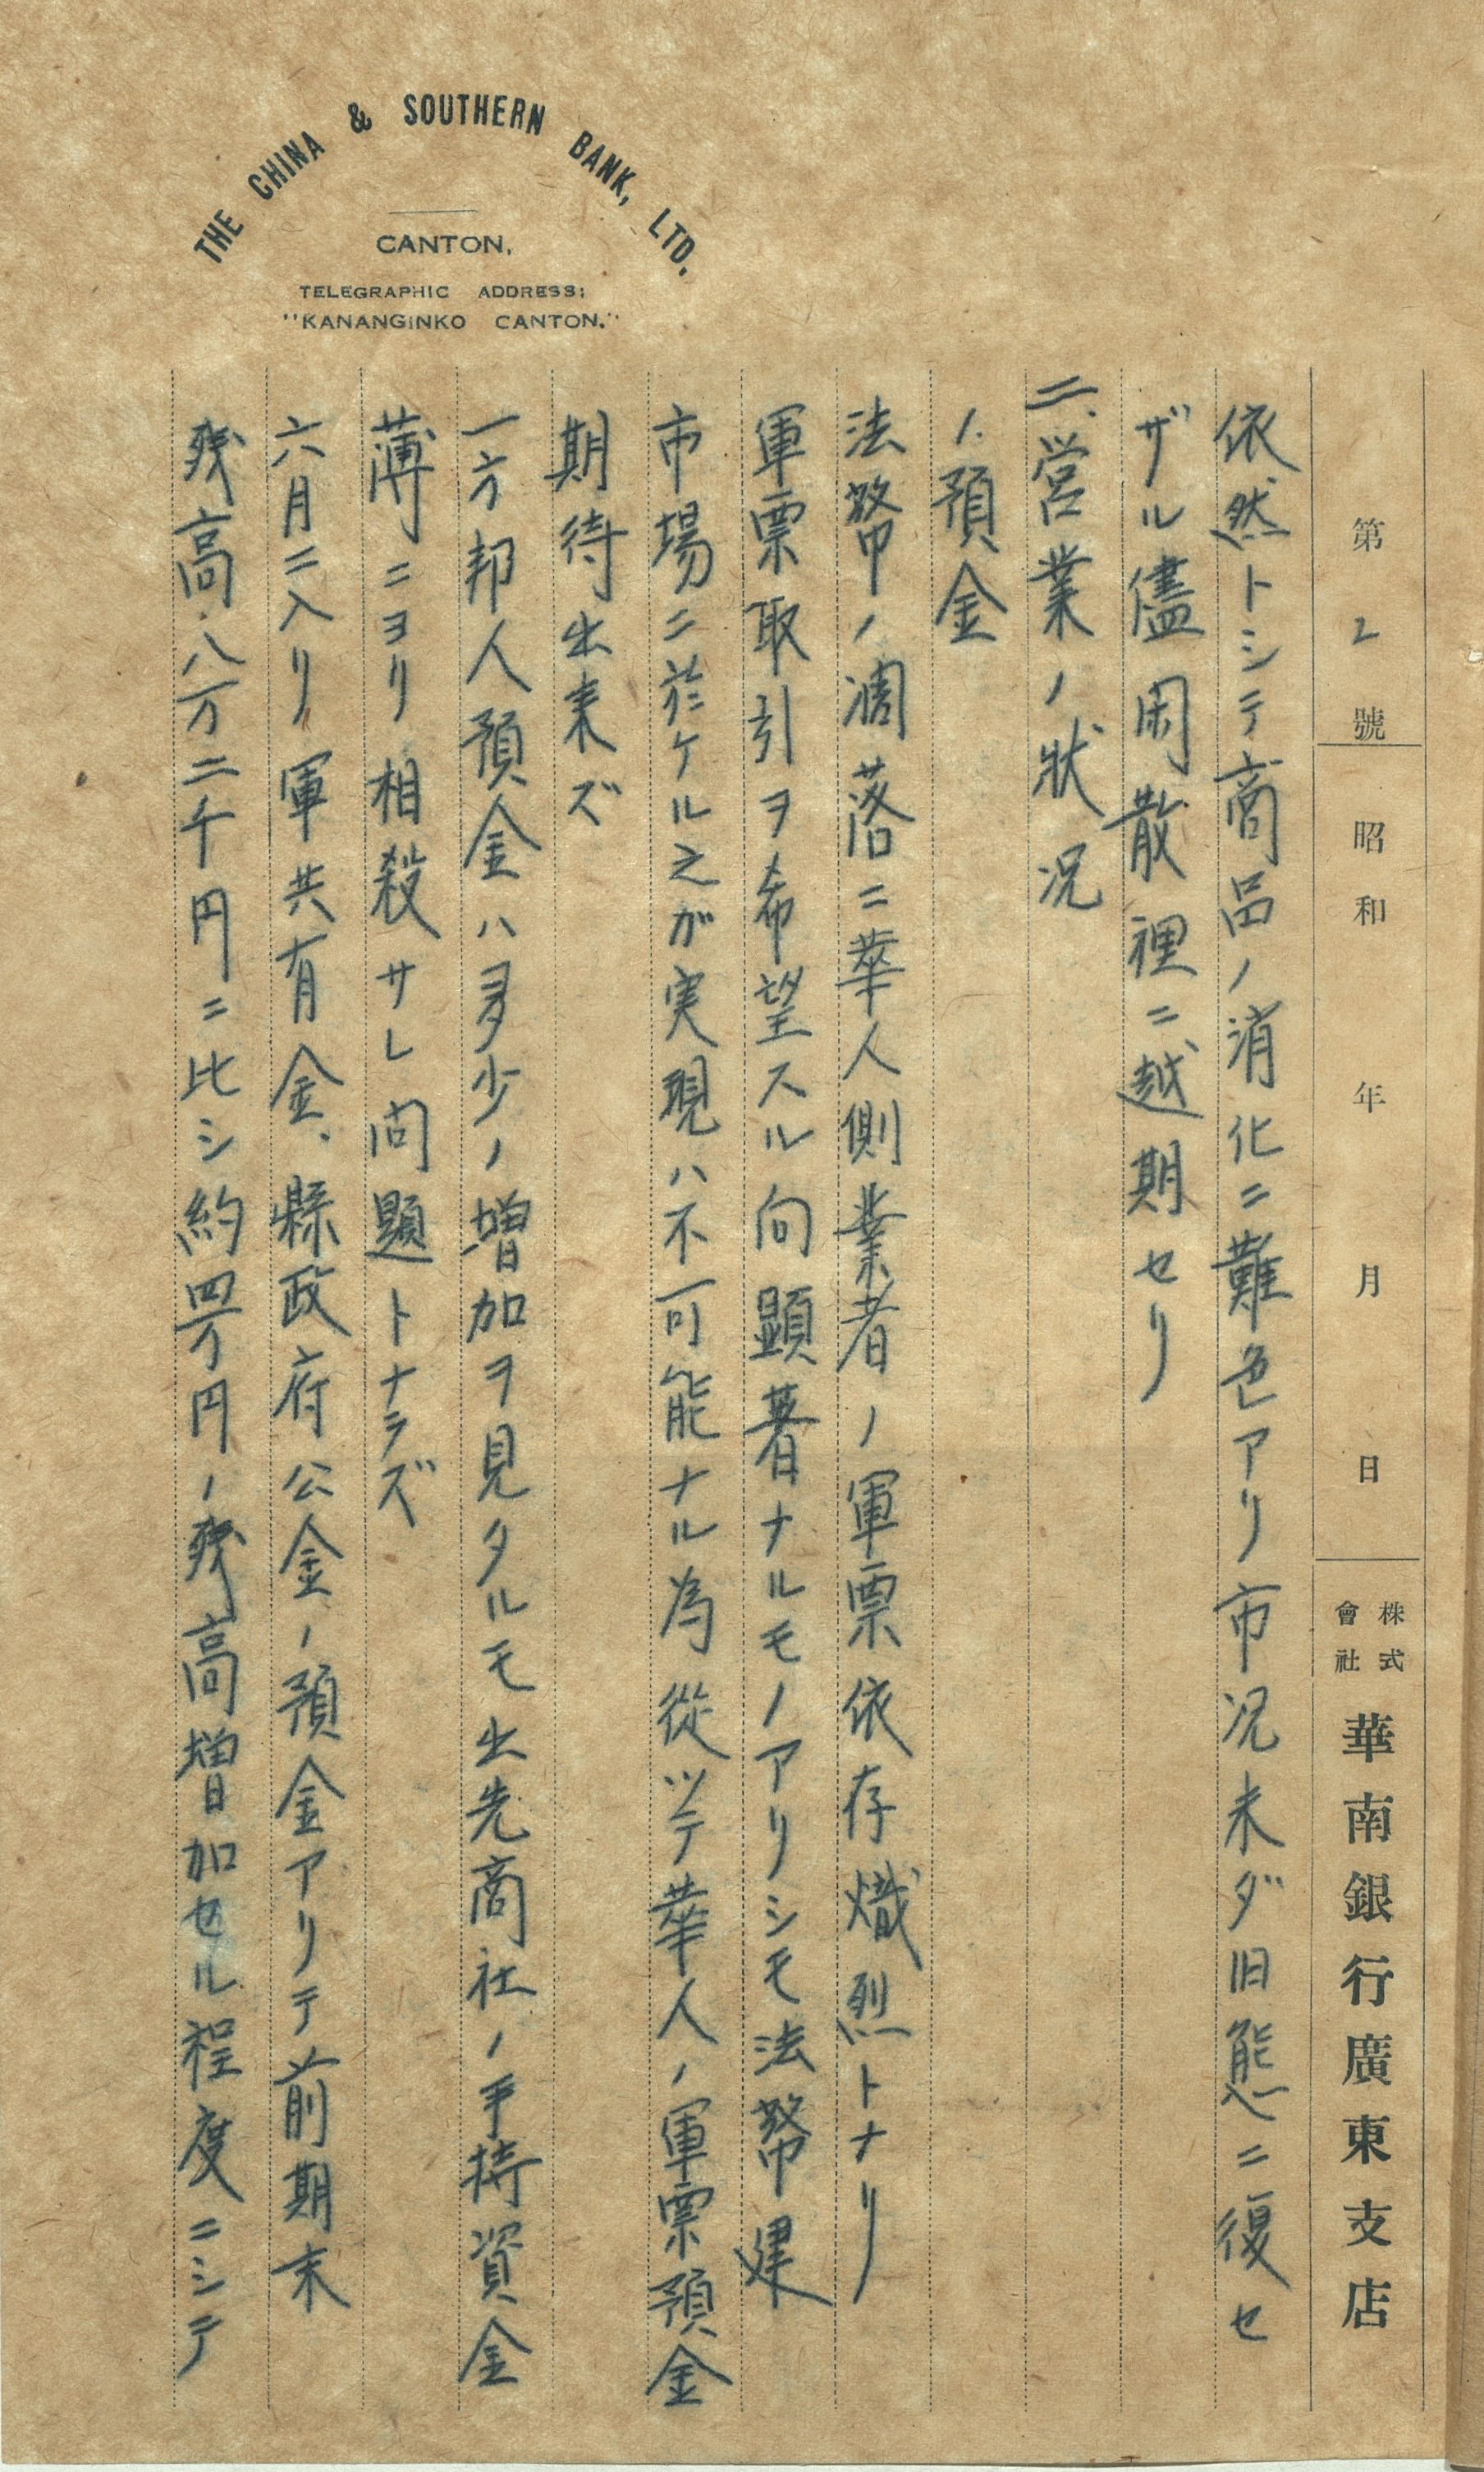 THE CHINA & SOUTHERN BANK, LTD.
CANTON,
TELEGRAPHIC ADDRESS;
"KANANGINKO CANTON."
第 2 號 昭和 年 月 日 株式會社 華南銀行廣東支店
依然トシテ商品ノ消化ニ難色アリ市况未ダ旧態ニ復セ
ザル儘閑散裡ニ越期セリ
二、営業ノ状况
1. 預金
法幣ノ凋落ニ華人側業者ノ軍票依存熾烈トナリ
軍票取引ヲ希望スル向顕著ナルモノアリシモ法幣建
市場ニ於ケル之が実現ハ不可能ナル為從ツテ華人ノ軍票預金
期待出来ズ
一方邦人預金ハ多少ノ増加ヲ見タルモ出先商社ノ手持資金
薄ニヨリ相殺サレ問題トナラズ
六月ニ入リ軍共有金、縣政府公金ノ預金アリテ前期末
残高八万二千円ニ比シ約四万円ノ残高増加セル程度ニシテ